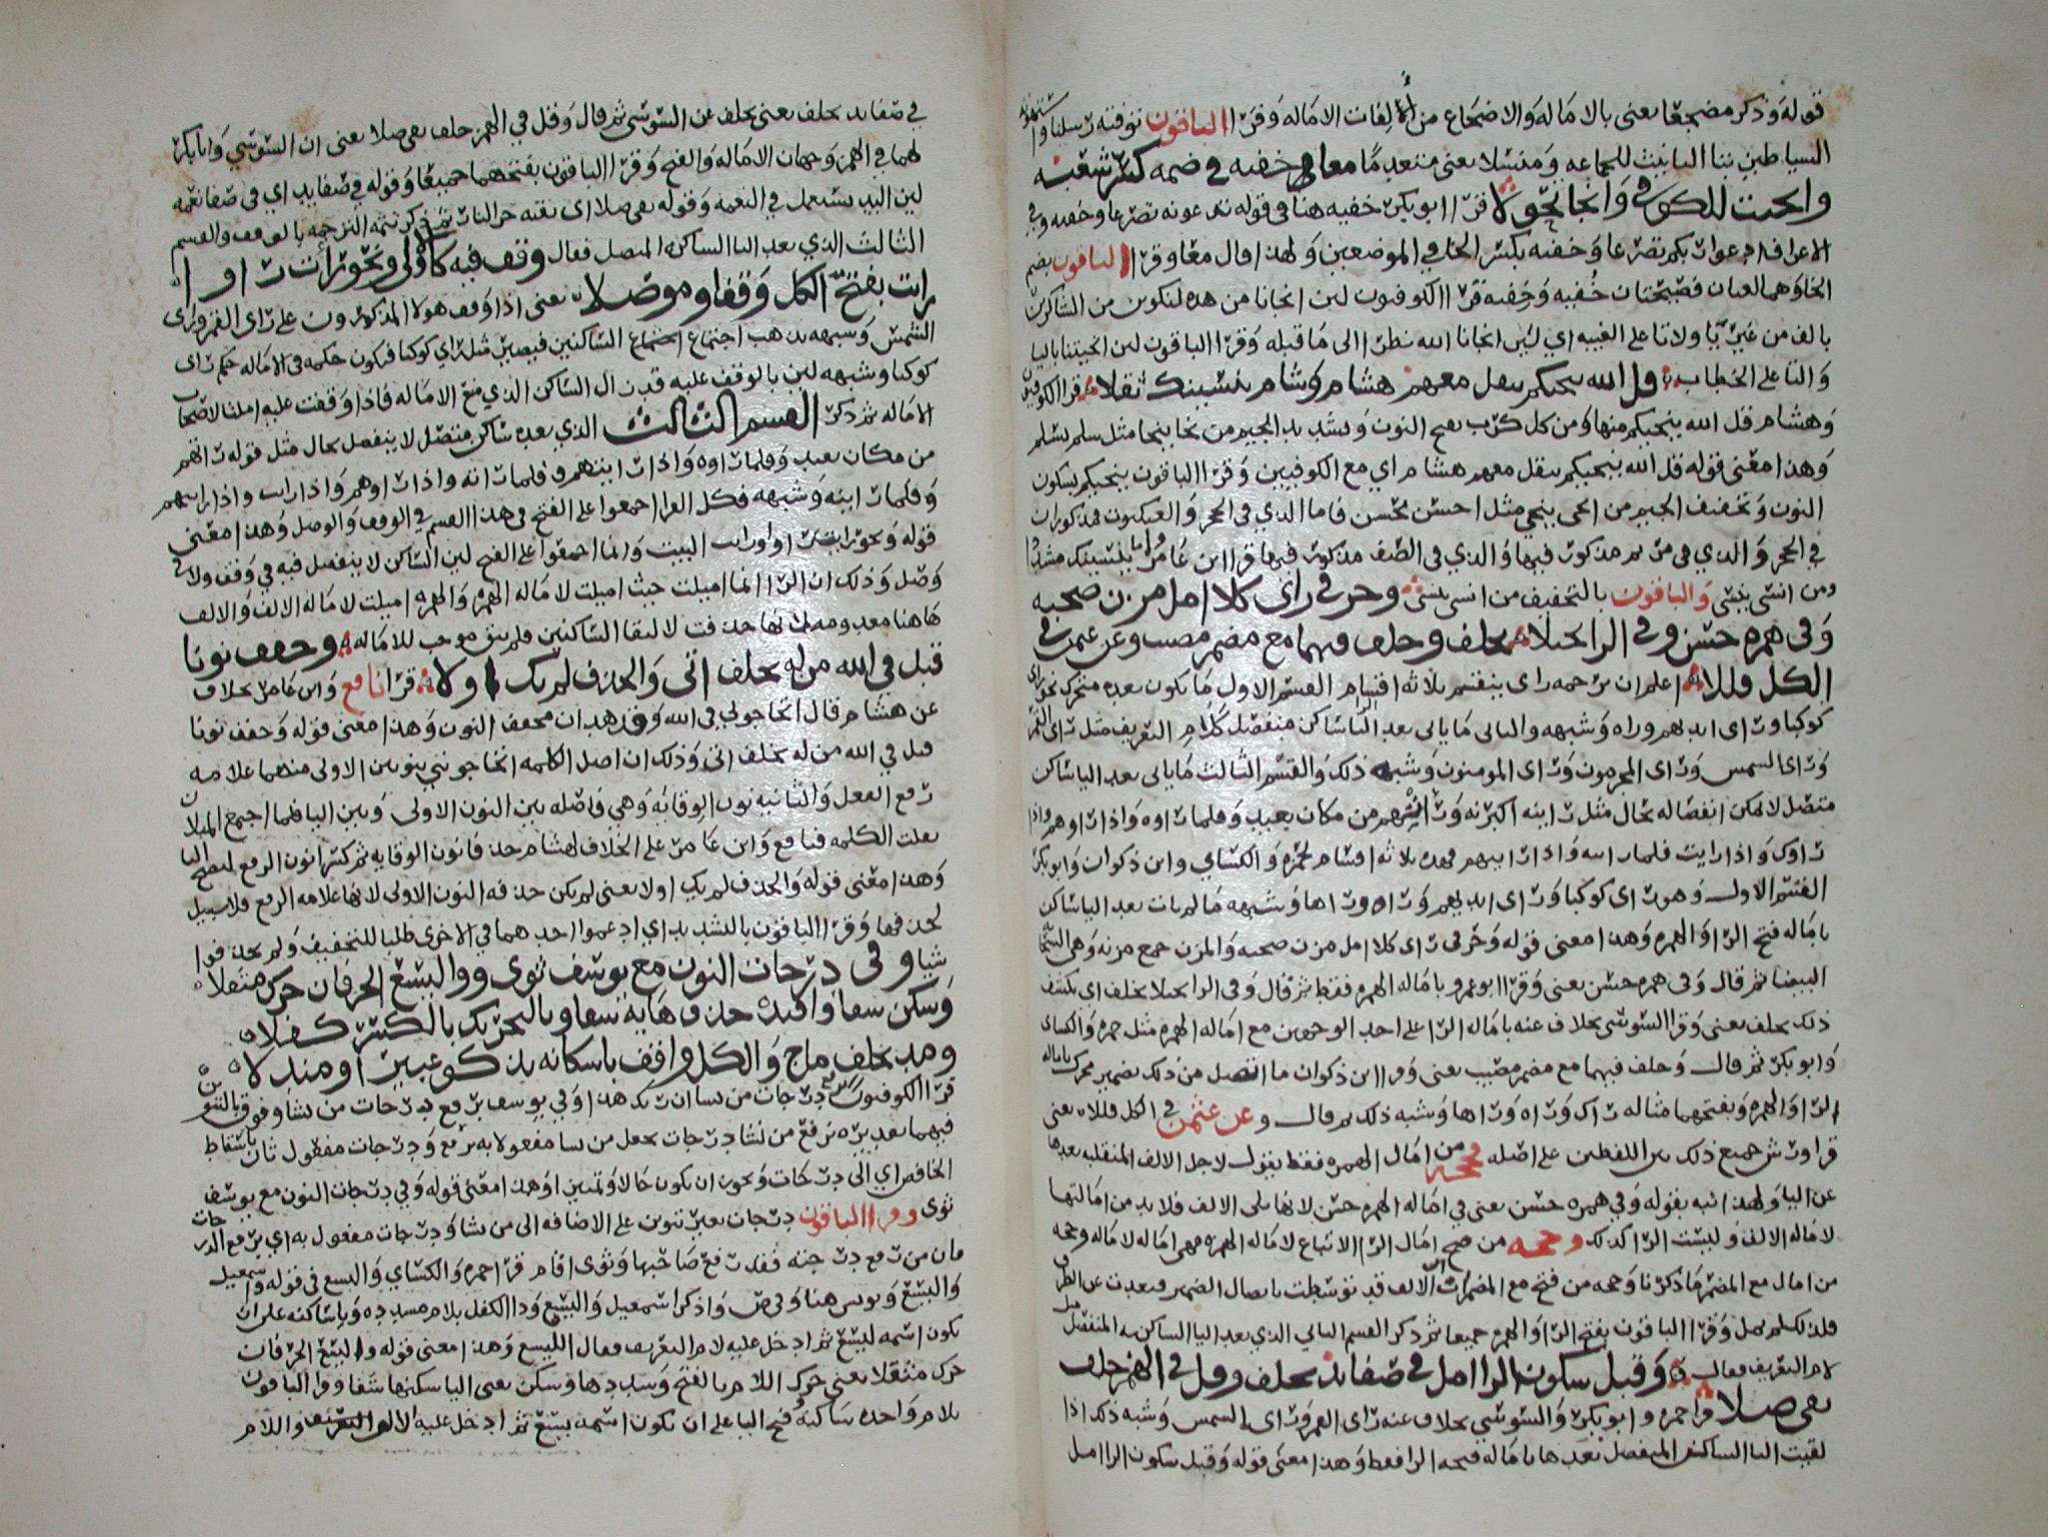 قوله وذكر مضجعا يعني بالاماله والاضجاع من الالفات الاماله وقرا الباقون توفته رسلنا واستهوته
الشياطين بتا التانيث للجماعه ومنسلا يعني متقدما معا خفيه في ضمه كسر شعبه
وانجيت للكوفي وانجا تحولا قرا ابو بكر خفيه هنا في قوله تدعونه تضرعا وخفيه وفي
الاعراف ادعوا ربكم تضرعا وخفيه بكسر الخا في الموضعين ولهذا قال معا وقرا الباقون بضم
الخا وهما لغتان فصيحتان خُفيه وخِفيه قرا الكوفيون لين انجانا من هذه لنكونن من الشاكرين
بالف من غير يا ولا تا على الغيبه اي لين انجانا الله نظرا الى ما قبله وقرا الباقون لين انجيتنا باليا
والتا على الخطاب قل الله ينجيكم يثقل معهم هشام وشام ينسينك ثقلا قرا الكوفيون
وهشام قل الله ينجيكم منها ومن كل كرب بفتح النون وتشديد الجيم من نجا ينجا مثل سلم يسلم
وهذا معنى قوله قل الله ينجيكم يثقل معهم هشام اي مع الكوفيين وقرا الباقون ينجيكم بسكون
النون وتخفيف الجيم من انجى ينجي مثل احسن يحسن فاما الذي في الحجر والعنكبوت فمذكوران
في الحجر والذي في مريم مذكور فيها والذي في الصف مذكور فيها قرا ابن عامر واما ينسينك مشددا
ومن انسى ينسى والباقون بالتخفيف من انسى ينسي وحرفي راى كلا امل مزن صحبه
وفي همزه حسن وفي الرا يجتلا بخلف وخلف فيهما مع مضمر مصيب وعن عثمن في
الكل قللا اعلم ان ترجمه راى ينقسم ثلاثه اقسام القسم الاول ما يكون بعده متحرك نحو راى
كوكبا وراى ايديهم وراه وشبهه والثاني ما ياتي بعد اليا ساكن منفصل كلام التعريف مثل راى القمر
وراى الشمس وراى المجرمون وراى المومنون وشبه ذلك والقسم الثالث ما ياتي بعد اليا ساكن
متصل لا يمكن انفصاله بحال مثل راينه اكبرنه وراتهم من مكان بعيد وفلما راوه واذا راوهم واذا
راوك واذا رايت فلما راته واذا رايتهم فهذه ثلاثه اقسام لحمزه والكساي وابن ذكوان وابو بكر
القسم الاول وهو راى كوكبا وراى ايديهم وراه وراها وشبهه ما لم يات بعد اليا ساكن
باماله فتح الرا والهمزه وهذا معنى قوله وحرفي راى كلا امل مزن صحبه والمزن جمع مزنه وهي السحابه
البيضا ثم قال وفي همزه حسن يعني وقرا ابو عمرو باماله الهمزه فقط ثم قال وفي الرا يجتلا بخلف اي يكشف
ذلك بخلف يعني وقرا السوسي بخلاف عنه باماله الرا على احد الوجهين مع اماله الهمزه مثل حمزه والكساي
وابو بكر ثم قال وخلف فيهما مع مضمر مصيب يعني وقرا ابن ذكوان ما اتصل من ذلك بضمير محرك باماله
الرا والهمزه وبفتحهما مثاله راك وراه وراها وشبه ذلك ثم قال وعن عثمن في الكل قللا يعني
قرا ورش جميع ذلك بين اللفظين على اصله وحجه من امال الهمزه فقط يقول لاجل الالف المنقلبه بعدها
عن اليا ولهذا نبه بقوله وفي همزه حسن يعني في اماله الهمزه حسن لانها تلى الالف فلا بد من امالتها
لاماله الالف وليست الرا كذلك وحجه من فتح امال الرا الاتباع لاماله الهمزه فهي اماله لاماله وحجه
من امال مع المضمر ما ذكرنا وحجه من فتح مع المضمرات الالف قد توسطت باتصال الضمير فبعدت عن الطرف
فلذلك لم يمل وقرا الباقون بفتح الرا والهمزه جميعا ثم ذكر القسم الثاني الذي بعد اليا الساكن به المنفصل مثل
لام التعريف فقال وقبل سكون الرا امل في صفا يد بخلف وقل في الهمز خلف
يقي صلا قرا حمزه وابو بكر والسوسي بخلاف عنه راى القمر وراى الشمس وشبه ذلك اذا
لقيت اليا الساكن المنفصل بعدها باماله فتحه الرا فقط وهذا معنى قوله وقبل سكون الرا امل
في صفا يد بخلف يعني بخلف عن السوسي ثم قال وقل في الهمز خلف يقي صلا يعني ان السوسي وابا بكر
لهما في الهمز وجهان الاماله والفتح وقرا الباقون بفتحهما جميعا وقوله في صفا يد اي في صفا نعمه
لين اليد يستعمل في النعمه وقوله يقي صلا اي يقيه حر النار ثم ذكر تتمه الترجمه بالوقف والقسم
الثالث الذي بعد اليا الساكن المتصل فقال وقف فيه كالاولى ونحو رات راوا
رايت بفتح الكل وقفا وموصلا يعني اذا وقف هولا المذكورون على راى القمر وراى
الشمس وشبهه يذهب اجتماع الساكنين فيصير مثل راى كوكبا فيكون حكمه في الاماله حكم راى
كوكبا وشبهه لين بالوقف عليه قد زال الساكن الذي منع الاماله فاذا وقفت عليه املت لاصحاب
الاماله ثم ذكر القسم الثالث الذي بعده ساكن متصل لا ينفصل بحال مثل قوله راتهم
من مكان بعيد وفلما راوه واذا رايتهم وفلما راته واذا راوهم واذا رايت واذا رايتهم
وفلما راينه وشبهه فكل القرا اجمعوا على الفتح في هذا القسم في الوقف والوصل وهذا معنى
قوله ونحو رات راوا رايت البيت وانما اجمعوا على الفتح لين الساكن لا ينفصل فيه في وقف ولا في
وصل وذلك ان الرا انما اميلت حيث اميلت لاماله الهمزه والهمزه اميلت لاماله الالف والالف
هاهنا معدومه لانها حذفت لالتقا الساكنين فلم يبق موجب للاماله وخفف نونا
قبل في الله من له بخلف اتى والحذف لم يك اولا قرا نافع وابن عامر بخلاف
عن هشام قال اتحاجوني في الله وقد هدان مخفف النون وهذا معنى قوله وخفف نونا
قبل في الله من له بخلف اتى وذلك ان اصل الكلمه اتحاجونني بنونين الاولى منهما علامه
رفع الفعل والثانيه نون الوقايه وهي فاصله بين النون الاولى وبين اليا فلما اجتمع المثلان
ثقلت الكلمه فنافع وابن عامر على الخلاف لهشام حذفا نون الوقايه ثم كسرا نون الرفع لتصح اليا
وهذا معنى قوله والحذف لم يك اولا يعني لم يكن حذفه النون الاولى لانها علامه الرفع فلا سبيل
لحذفها وقرا الباقون بالتشديد اي ادغموا احدهما في الاخرى طلبا للتخفيف ولم يحذفوا
شيا وفي درجات النون مع يوسف ثوى ووالليسع الحرفان حرك مثقلا
وسكن شفا واقتده حذف هايه شفا وبالتحريك بالكسر كفلا
ومد بخلف ماج والكل واقف باسكانه يذكو عبيرا ومندلا
قرا الكوفيون نرفع درجات من نشا ان ربك هنا وفي يوسف نرفع درجات من نشا وفوق بالتنوين
فيهما تقديره نرفع من نشا درجات يجعل من نشا مفعولا به نرفع ودرجات مفعول ثان باسقاط
الخافض اي الى درجات ويجوز ان يكون حالا وتمييزا وهذا معنى قوله وفي درجات النون مع يوسف
ثوى وقرا الباقون درجات بغير تنوين على الاضافه الى من نشا ودرجات مفعول به اي نرفع الدرجات
فان من رفع درجته فقد رفع صاحبها وثوى اقام قرا حمزه والكساي والليسع في قوله واسمعيل
والليسع ويونس هنا وفي ص واذكر اسمعيل والليسع وذا الكفل بلام مشدده ويا ساكنه على ان
يكون اسمه ليسع ثم ادخل عليه لام التعريف فقال الليسع وهذا معنى قوله والليسع الحرفان
حرك مثقلا يعني حرك اللام بالفتح وشددها وسكن يعني اليا سكنها شفا وقرا الباقون
بلام واحده ساكنه وفتح اليا على ان يكون اسمه يسع ثم ادخل عليه الالف واللام